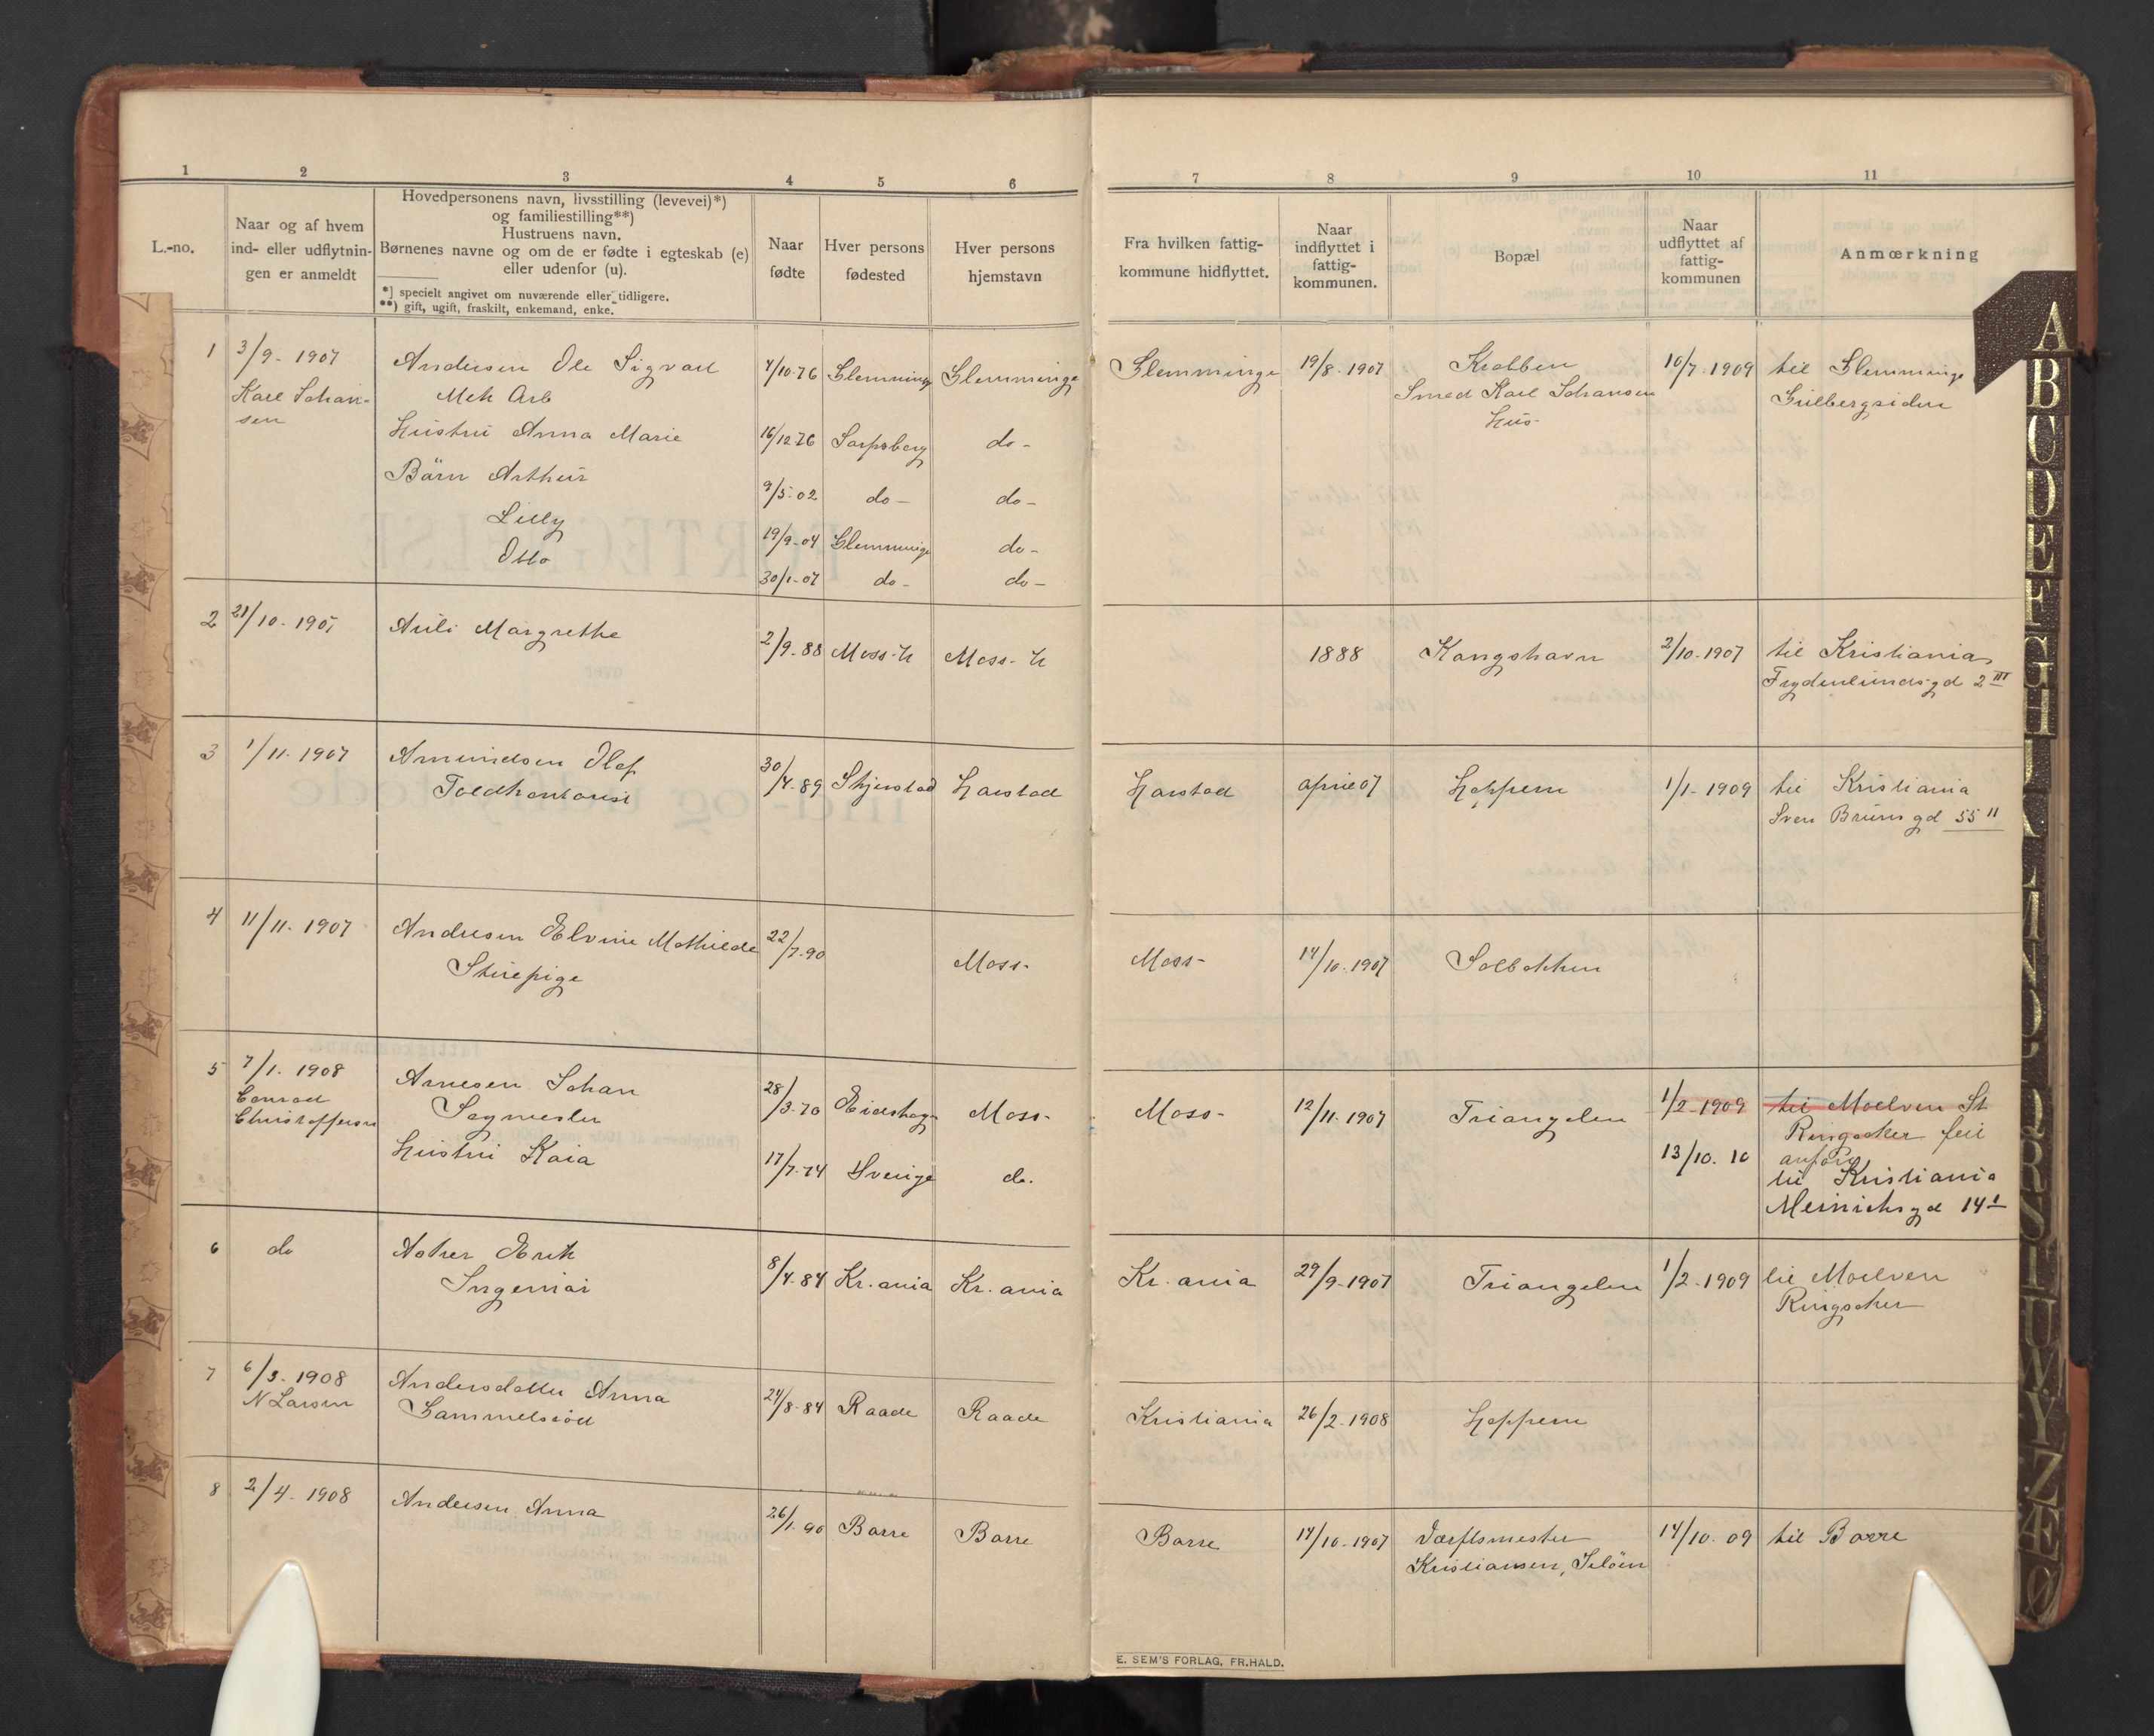 1 2 3 4 5 6
L.-no.
Naar og af hvem
ind- eller udflytnin-
gen er anmeldt
Hovedpersonens navn, livsstilling (levevei)*)
og familiestilling**)
Hustruens navn.
Børnenes navne og om de er fødte i egteskab (e)
eller udenfor (u).
*) specielt angivet om nuværende eller tidligere.
**) gift, ugift, fraskilt, enkemand, enke.
Naar
fødte
Hver persons
fødested
Hver persons
hjemstavn
1 3/9- 1907 Andersen Ole Sigvart 4/10-76 Glemminge Glemminge
Karl Johan- Mek Arb
sen Hustru Anna Marie 16/12 76 Sarpsborg do-
Börn Arthur 9/5-02 do- do-
Lilly 19/9-04 Glemminge do-
Otto 30/1-07 do- do-
2 21/10-1907 Auli Margrethe 2/9-88 Moss-L Moss-L
3 1/11-1907 Amundsen Olaf 30/4-89 Skjerstad Harstad
Toldkontorist
4 11/11-1907 Andresen Elvine Mathilde 22/7-90 Moss-
Stuepige
5 7/1-1908 Arnesen Johan 28/3-70 Eidskog Moss-
Conrad Sagmester
Christoffersen Hustru Kaia 17/7-74 Sverige do.
6 do Asker Erik 8/4-84 Kr.ania Kr.ania
Ingeniør
7 6/3-1908 Andersdatter Anna 24/8-84 Raade Raade
N Larsen Gammelsrød
8 2/4-1908 Andersen Anna 26/1-90 Borre Borre
7 8 9 10 11
Fra hvilken fattig-
kommune hidflyttet.
Naar
indflyttet i
fattig-
kommunen.
Bopæl
Naar
udflyttet af
fattig-
kommunen
Anmœrkning
Glemminge 19/8-1907 Krabben 10/7-1909 til Glemminge
Smed Karl Johansen Gulbergsiden
Hus-
1888 Kongshavn 2/10-1907 til Kristiania
Frydenlundsgd 2 III
Harstad april 07 Hoppern 1/1-1909 til Kristiania
Sven Brunsgd 55 II
Moss- 14/10-1907 Solbakken
Moss- 12/11-1907 Triangelen 1/2-1909 til Moelven St
Ringsaker feil
13/10.10 anført
til Kristiania
Meinichsgd 14 I
Kr.ania 29/9-1907 Triangelen 1/2-1909 til Moelven
Ringsaker
Kristiania 26/2-1908 Hoppern
Borre 14/10-1907 Værftsmester 14/10-09 til Borre
Kristiansen, Jeløen
E. SEM'S FORLAG, FR.HALD.
A
B
C
D
E
F
G
H
I
J
K
L
M
N
O
P
Q
R
S
T
U
V
Y
Z
Æ
Ø